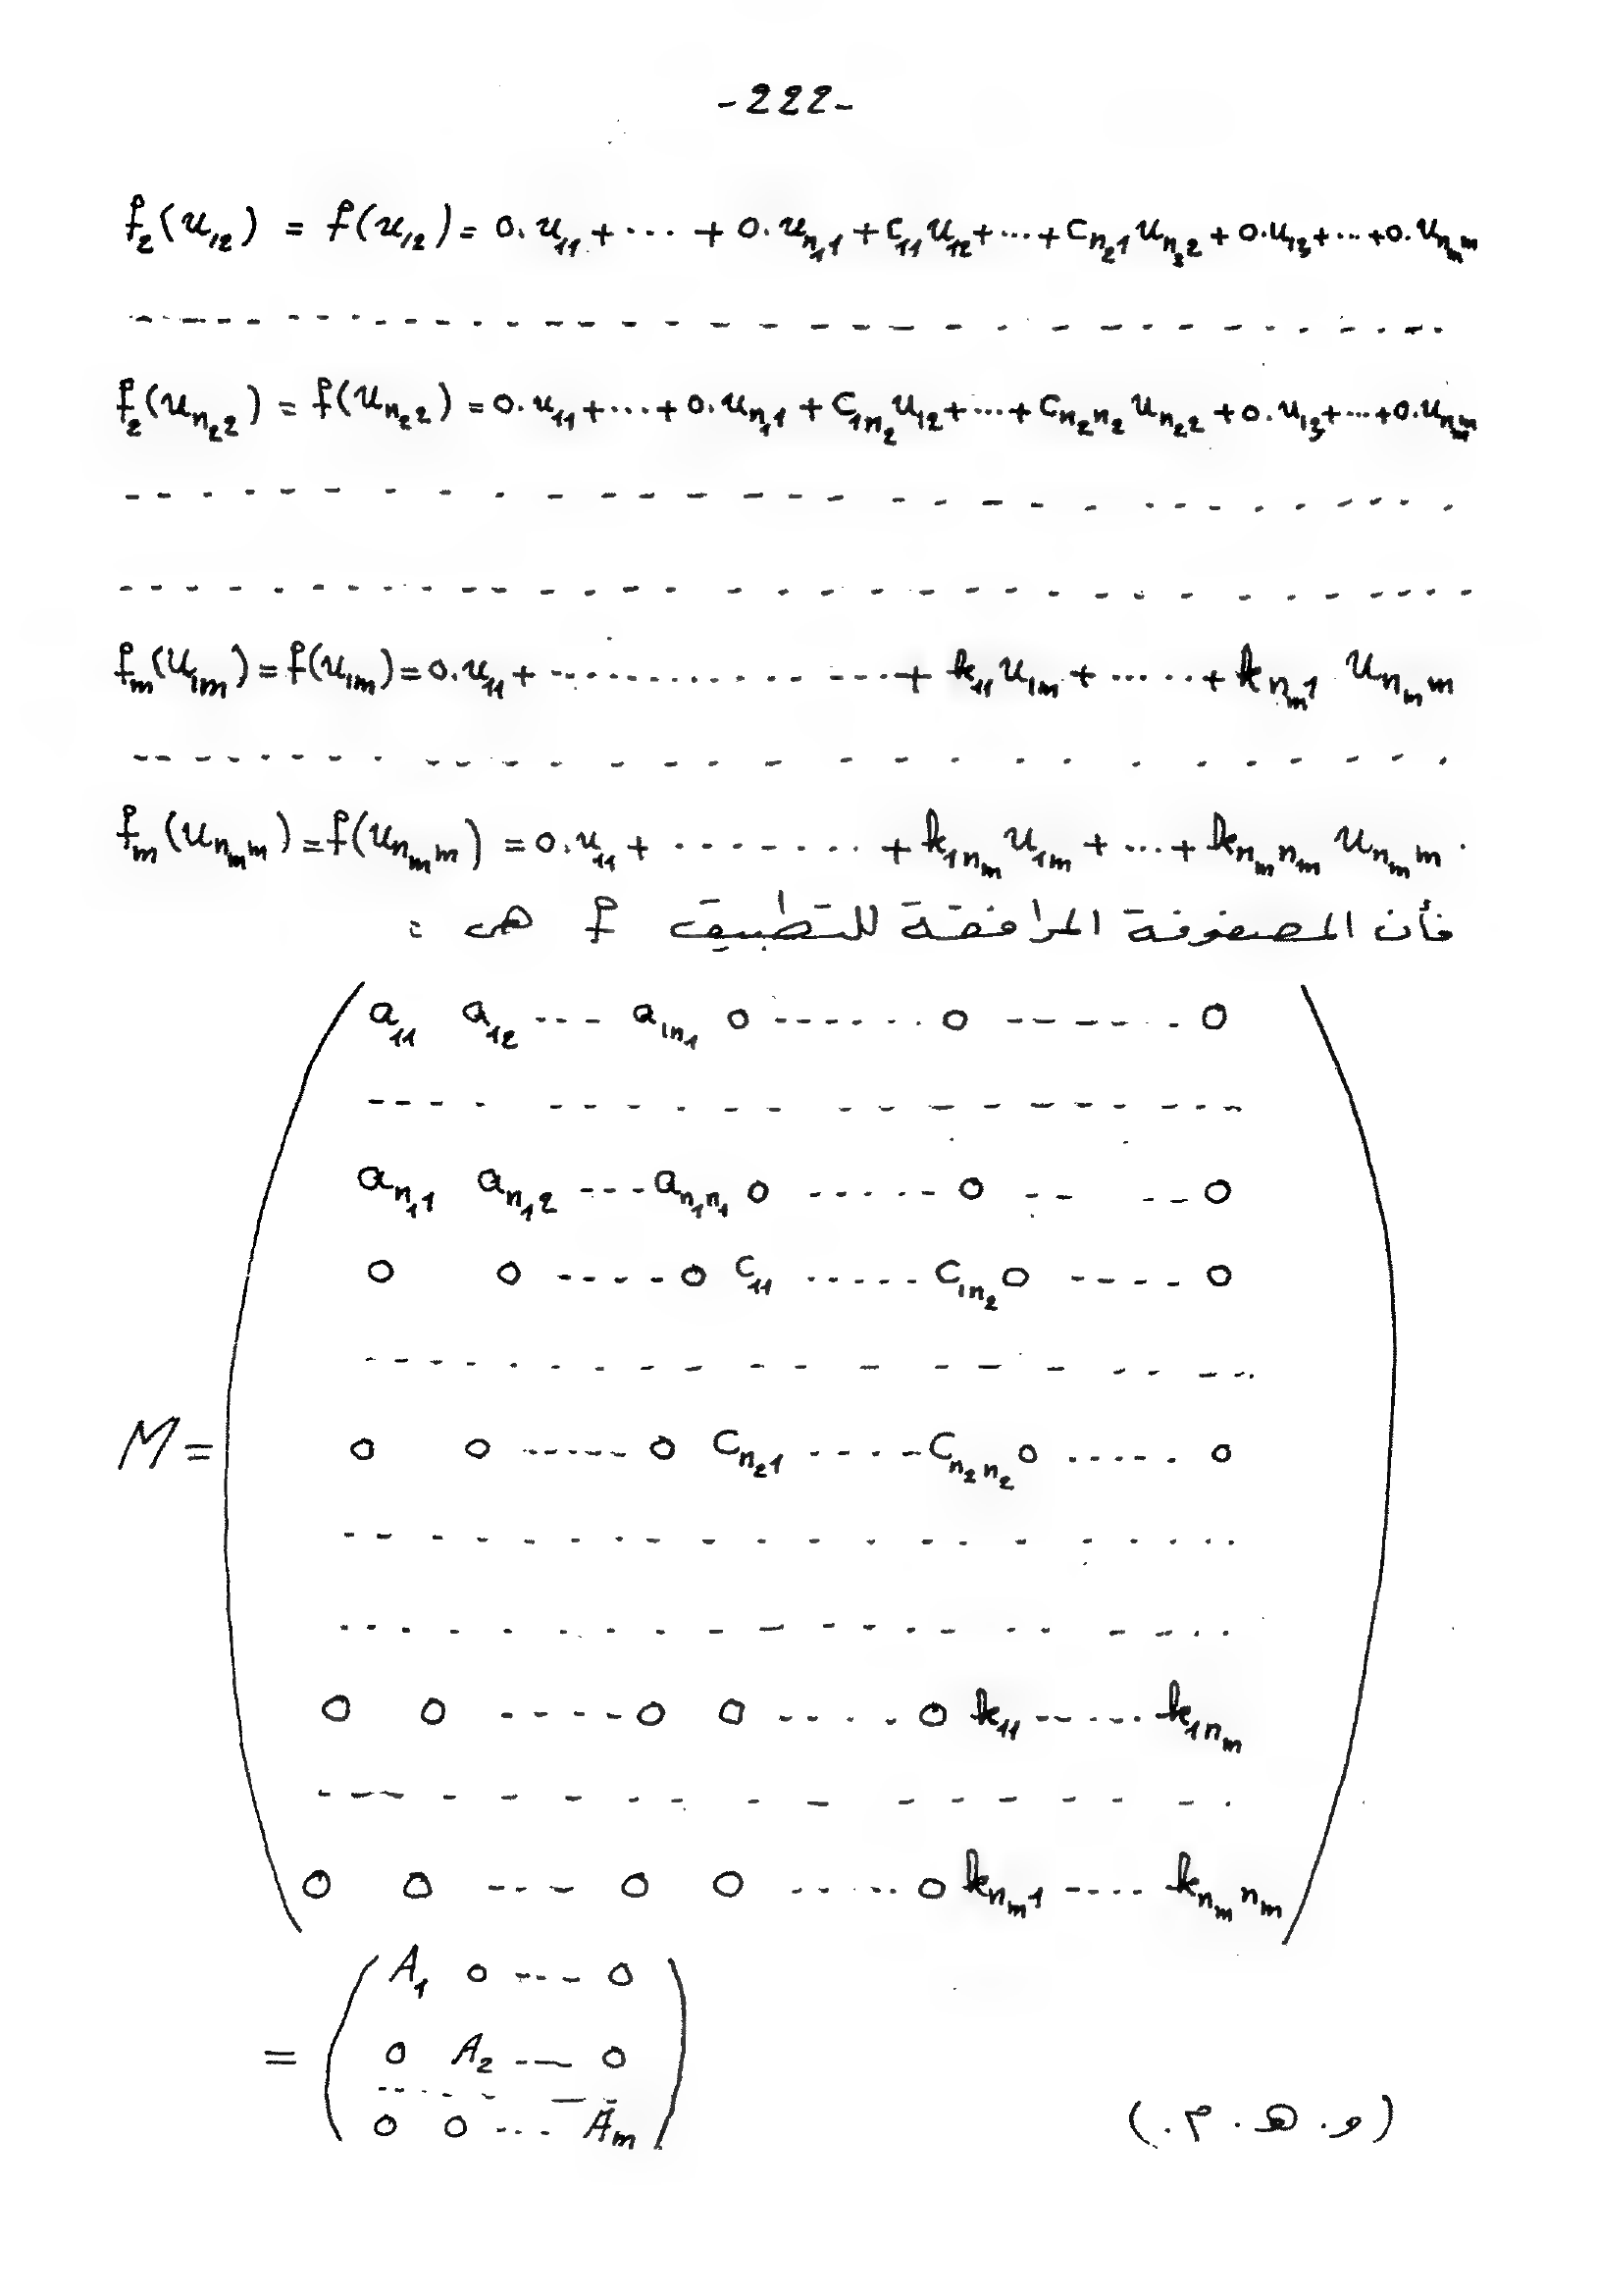 -222-
f_2(u_{12}) = f(u_{12}) = 0.u_{11} + ... + 0.u_{n_1 1} + c_{11} u_{12} + ... + c_{n_2 1} u_{n_2 2} + 0.u_{13} + ... + 0.u_{n_m m}
- - - - - - - - - - - - - - - - - - - -
f_2(u_{n_2 2}) = f(u_{n_2 2}) = 0.u_{11} + ... + 0.u_{n_1 1} + c_{1n_2} u_{12} + ... + c_{n_2 n_2} u_{n_2 2} + 0.u_{13} + ... + 0.u_{n_m m}
- - - - - - - - - - - - - - - - - - - -
- - - - - - - - - - - - - - - - - - - -
f_m(u_{1m}) = f(u_{1m}) = 0.u_{11} + .............. + k_{11} u_{1m} + ..... + k_{n_m 1} u_{n_m m}
- - - - - - - - - - - - - - - - - - - -
f_m(u_{n_m m}) = f(u_{n_m m}) = 0.u_{11} + ......... + k_{1n_m} u_{1m} + ... + k_{n_m n_m} u_{n_m m} .
فأن المصفوفة المرافقة للتطبيق f هي :
a_{11} a_{12} --- a_{1n_1} 0 ------ 0 ------ 0
- - - - - - - - - - - - - - - - - - - -
a_{n_1 1} a_{n_1 2} --- a_{n_1 n_1} 0 ----- 0 -- -- 0
0 0 ----- 0 c_{11} ------ c_{1n_2} 0 ----- 0
- - - - - - - - - - - - - - - - - - - -
M = 0 0 ------ 0 c_{n_2 1} ----- c_{n_2 n_2} 0 ----- 0
- - - - - - - - - - - - - - - - - - - -
- - - - - - - - - - - - - - - - - - - -
0 0 ----- 0 0 ----- 0 k_{11} ------ k_{1n_m}
- - - - - - - - - - - - - - - - - - - -
0 0 ---- 0 0 ----- 0 k_{n_m 1} ----- k_{n_m n_m}
A_1 0 ---- 0
= 0 A_2 --- 0
- - - - - - - -
0 0 ---- A_m
(و . هـ . م .)